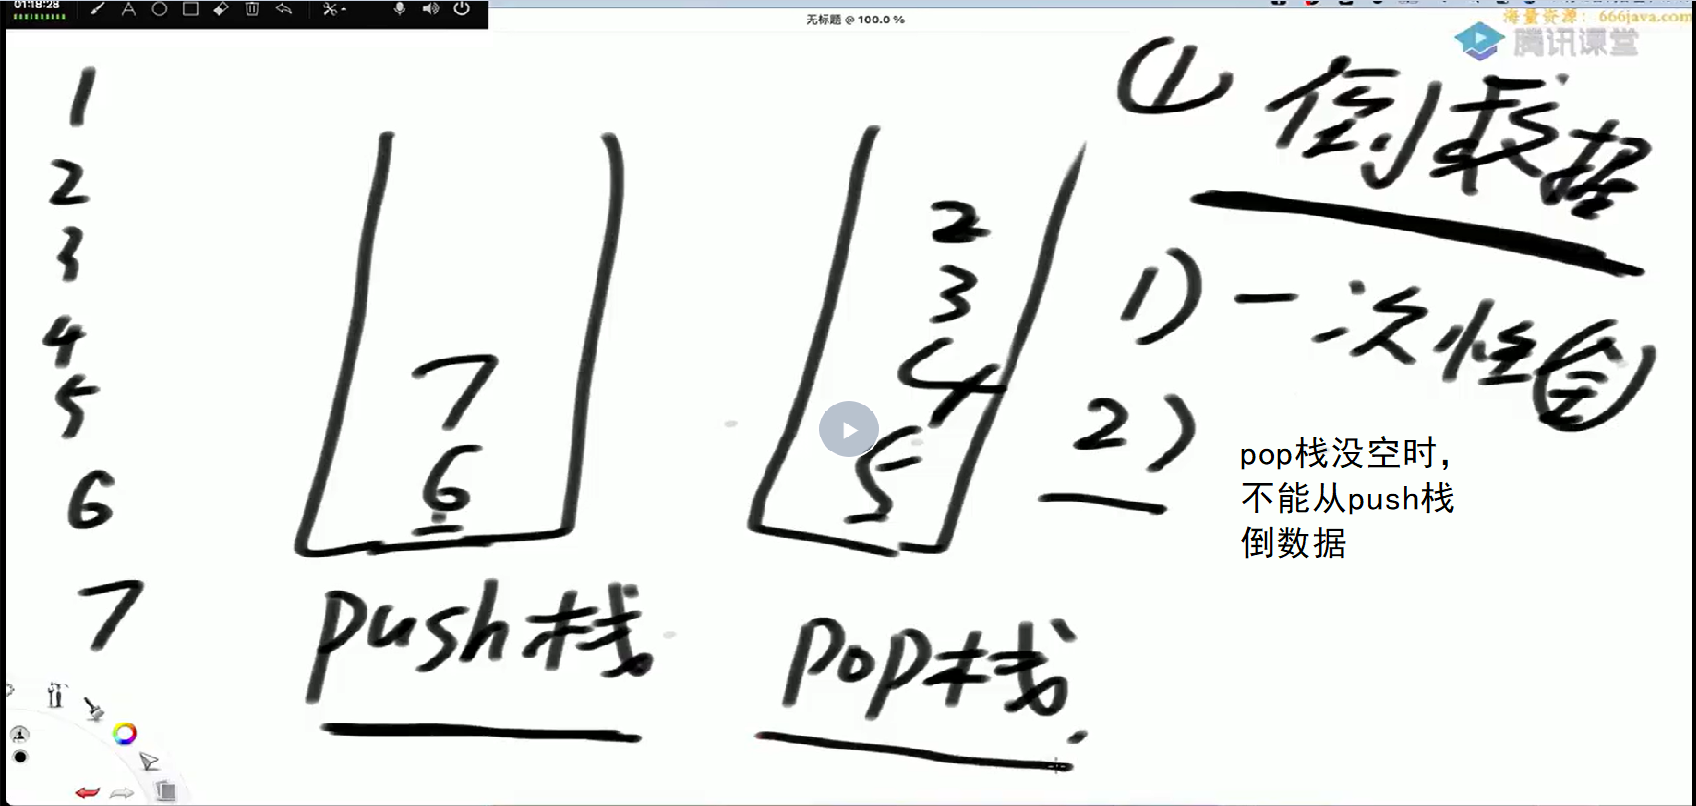 01:18:28
无标题 @ 100.0 %
海量资源：666java.com
腾讯课堂
1
2
3
4
5
6
7
7
6
push栈
2
3
4
5
pop栈
① 倒数据
1) 一次性倒
2)
pop栈没空时，
不能从push栈
倒数据